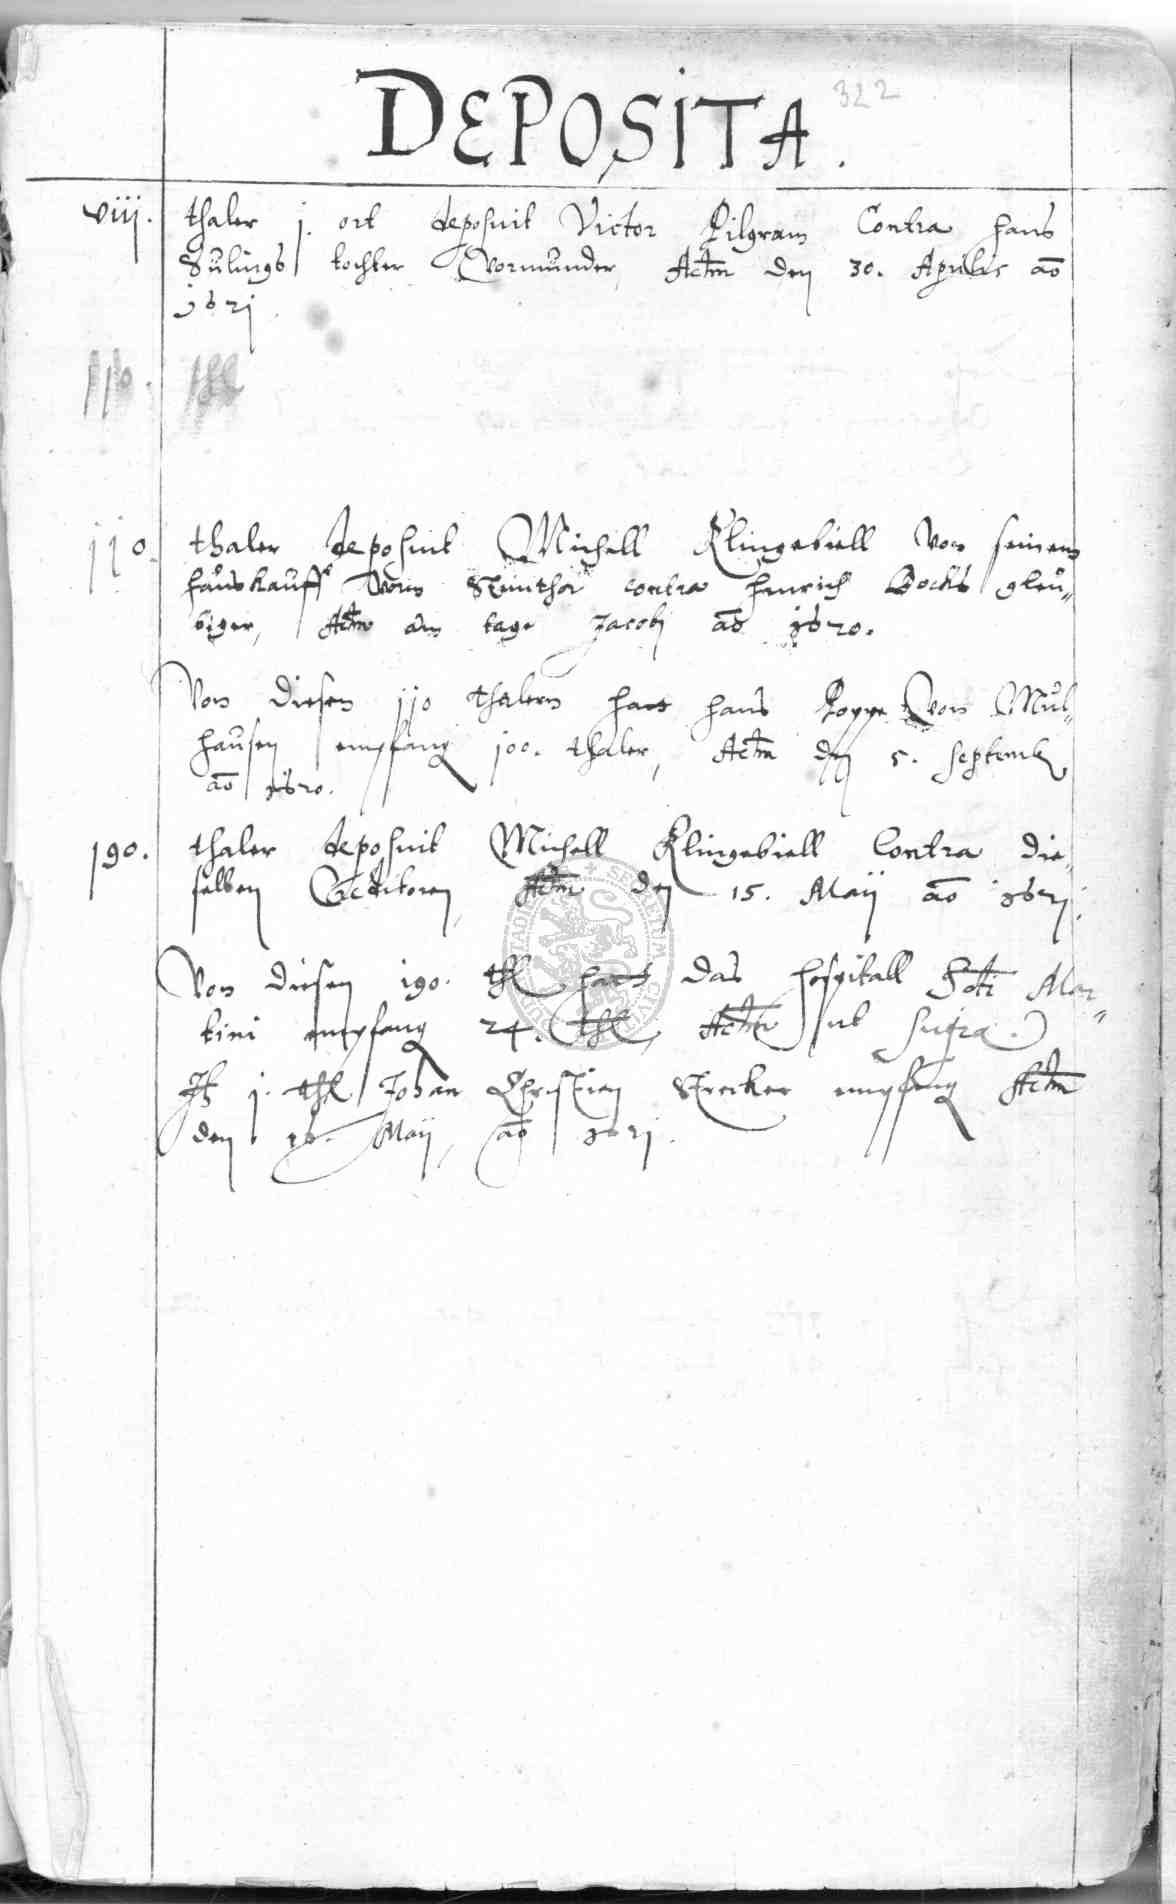 322
DEPOSITA.
viij. thaler j. ort deposuit Victor Pilgram Contra Hans
Sülings tochter Vormunder, Actm den 30. Aprilis aō
1621.
110. thl
110. thaler deposuit Michell Klingebiell von seinem
hauskauff vorm Steinthor contra Hinrich Bocks gleu-
biger, Actm am tage Jacobj aō 1620.
Von diesen 110 thalern hatt Hans Poppe von Mul-
hausen empfang 100. thaler, Actm den 5. Septemb
aō 1620.
190. thaler deposuit Michell Klingebiell Contra die-
selben Creditoren, Actm den 15. Maij aō 1621.
Von diesen 190. thl hatt das hospitall Scti Mar-
tini empfang 24. thl, Actm ut supra.
It j. thl Johan Christian Strecker empfang Actm
den 16. Maij, aō 1621.
SECRETUM